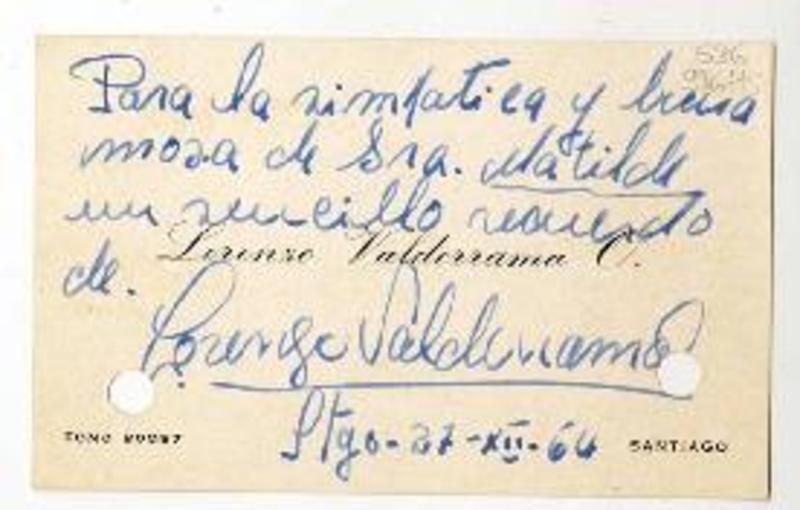 Para la simpatica y buena
moza de Sra. Matilde
un sencillo recuerdo
Lorenzo Valderrama O.
de.
Lorenzo Valderrama
Stgo-27-XII-64
SANTIAGO